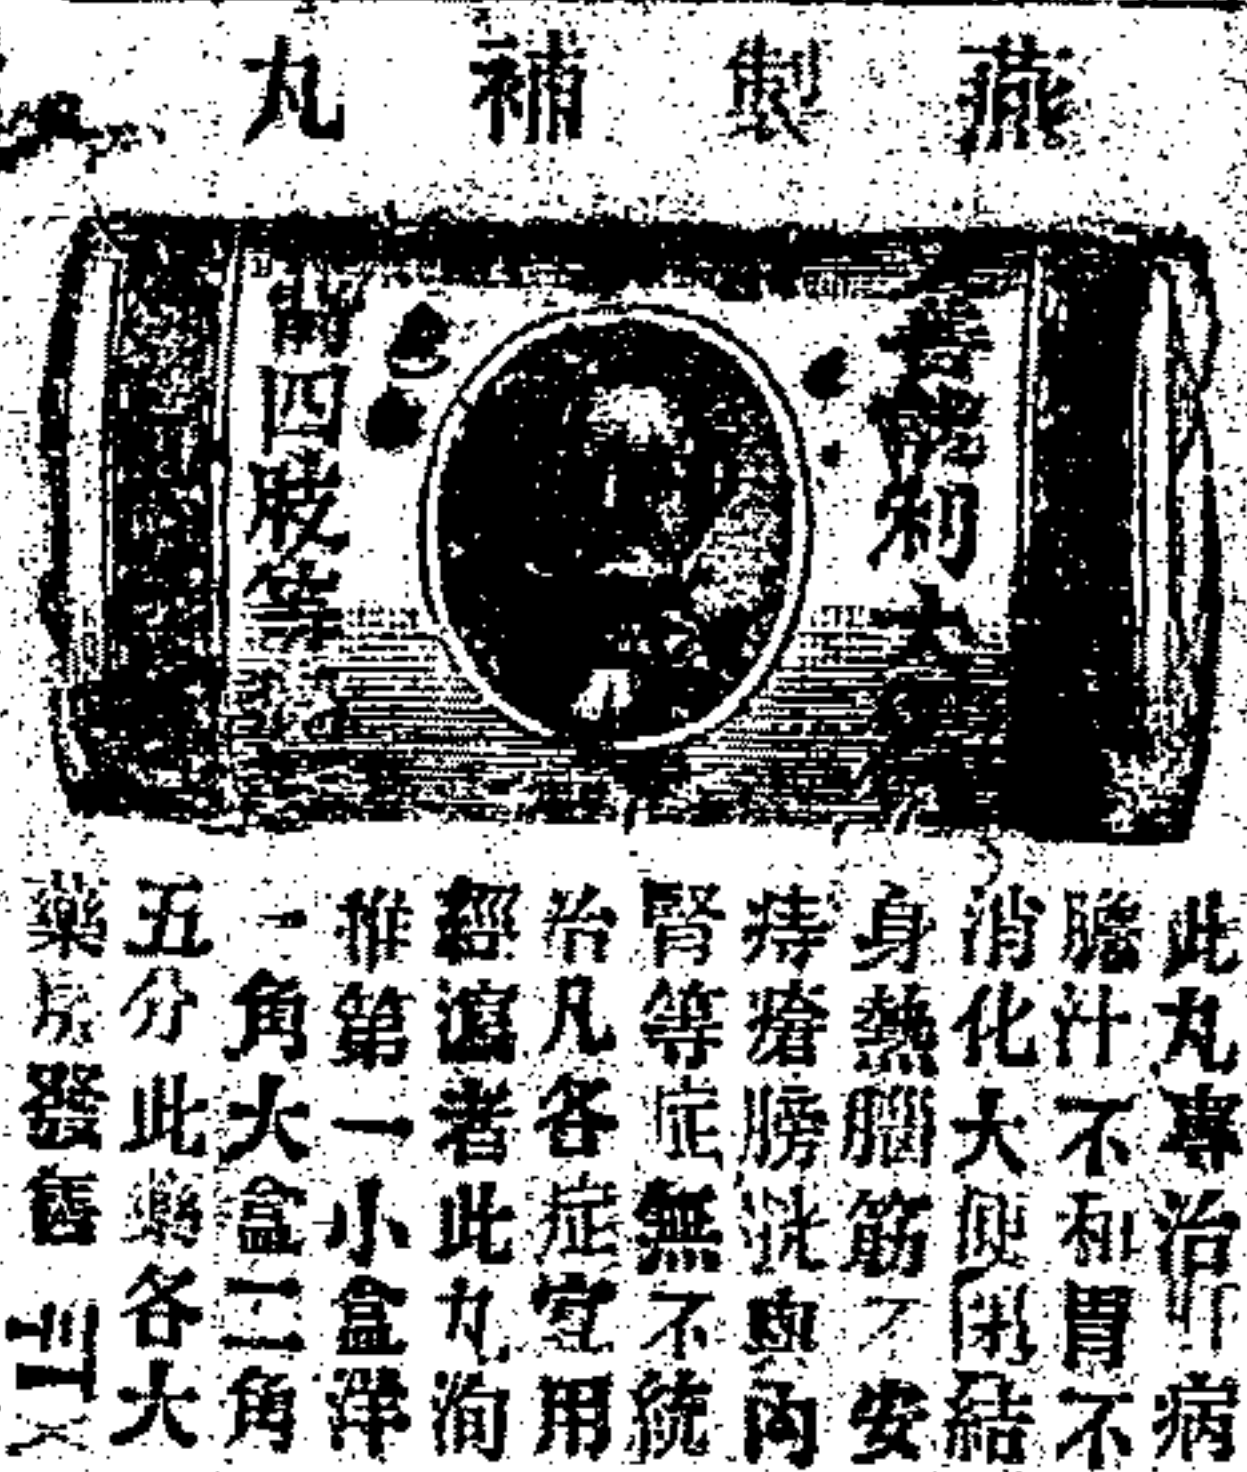 燕製補丸
利大
四肢等
此丸專治肝病
膽汁不和胃不
消化大便閉結
身熱腦筋不安
痔瘡膀胱與內
腎等症無不統
治凡各症宜用
經瀉者此丸洵
推第一小盒洋
一角大盒二角
五分此藥各大
藥房發售